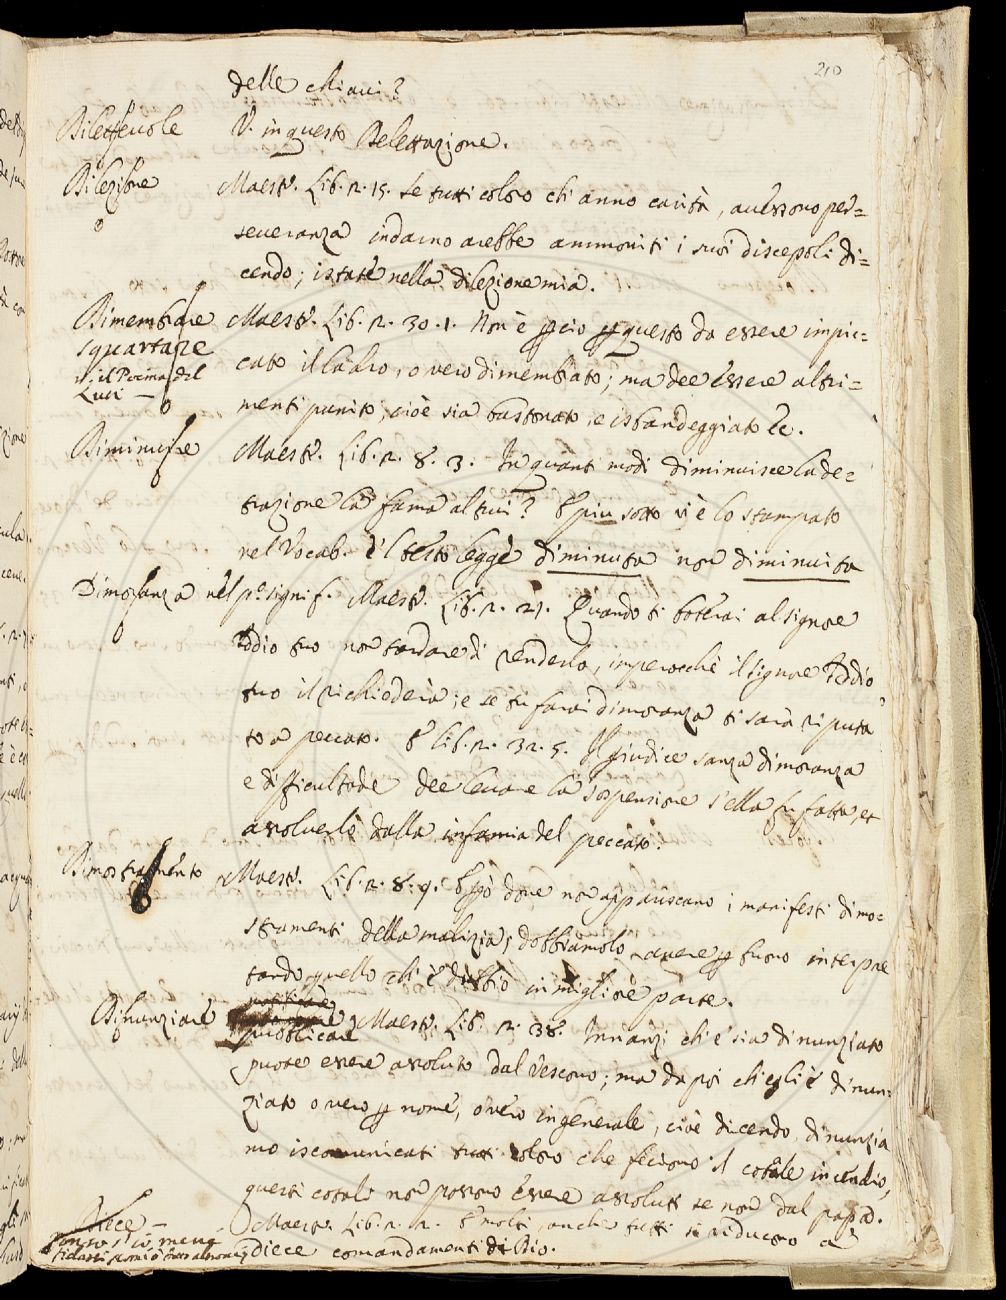 210
delle chiavi?
Dilettevole V. in questo Delettazione.
Dilezione Maestr. Lib. 2. 15. Se tutti coloro ch'anno carità, avessono per=
severanza indarno arebbe ammoniti i suoi discepoli di=
cendo; istate nella dilezione mia.
Dimembrare Maestr. Lib. 2. 30. 1. Non è per questo da essere impic=
squartare
v. il Poema del
Luci —
cato il ladro, o vero dimembrato; ma dee essere altri=
menti punito, cioè sia bastonato, e isbandeggiato &c.
Diminuire Maestr. Lib. 2. 8. 3. In quanti modi diminuisce la de=
trazione la fama altrui? E più sotto vi è lo stampato
nel Vocab. e 'l testo legge diminuta non diminuita
Dimoranza nel po. signif. Maestr. Lib. 2. 21. Quando ti boterai al signore
Iddio tuo non tardare di renderlo, imperocchè il signore Iddio
tuo il richiederà; e se tu farai dimoranza ti sarà riputa
to a peccato. E Lib. 2. 32. 5. Il giudice sanza dimoranza
e difficultade dee levare la sospensione s'ella fu fatta, et
assolverlo dalla infamia del peccato.
Dimostramento Maestr. Lib. 2. 8. 9. E però dove non appariscano i manifesti dimo=
stramenti della malizia, dobbiamolo avere per buono interpre
tando quello ch'è dubbio in migliore parte.
Dinunziare pubblicare Maestr. Lib. 2. 38. Innanzi ch'e' sia dinunziato
puote essere assoluto dal Vescovo; ma da poi ch'egli è dinun=
ziato o vero per nome, o vero in generale, cioè dicendo, dinunzia
mo iscomunicati tutti coloro che feciono il cotale incendio,
questi cotali non possono essere assoluti se non dal papa.
Diece — Maestr. Lib. 2. 2. E molti anche tutti si riducono a'
diece comandamenti di Dio.